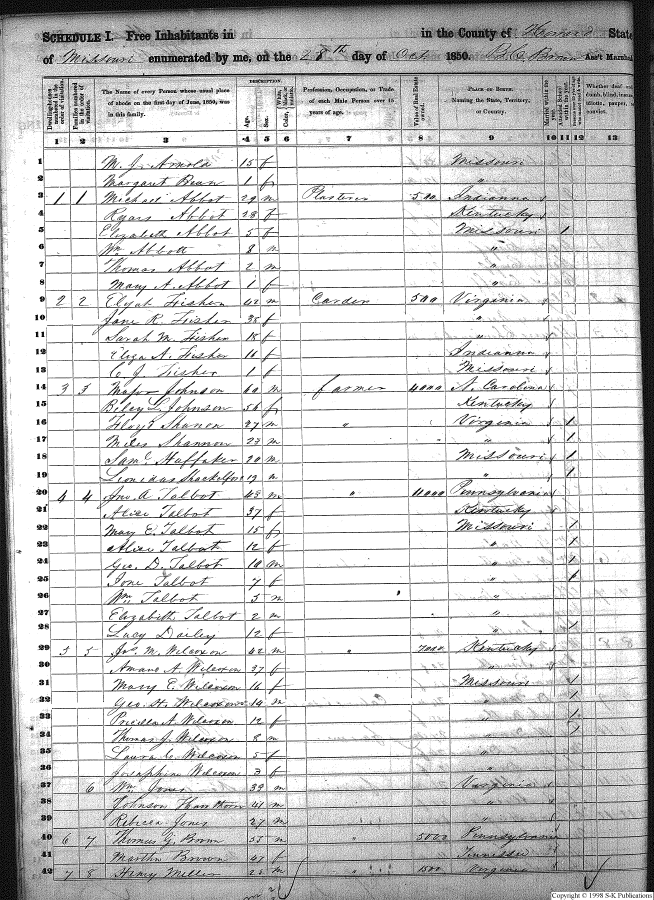 SCHEDULE I. Free Inhabitants in in the County of Howard State
of Missouri enumerated by me, on the 28th day of Oct 1850. Ass't Marshal
DESCRIPTION.
Dwelling-houses numbered in the order of visitation.
Families numbered in the order of visitation.
The Name of every Person whose usual place of abode on the first day of June, 1850, was in this family.
Age.
Sex.
Color,
Profession, Occupation, or Trade of each Male Person over 15 years of age.
Value of Real Estate owned.
PLACE OF BIRTH. Naming the State, Territory, or Country.
1 2 3 4 5 6 7 8 9 10 11 12 13
1 M. J. Arnold 15 f Missouri
2 Margaret Bean 1 f "
3 1 1 Michael Abbot 29 m Plasterer 500 Indianna
4 Abbot 28 f Kentucky
5 Elizabeth Abbot 5 f Missouri 1
6 Wm Abbott 8 m "
7 Thomas Abbot 2 m "
8 Mary A. Abbot 1 f "
9 2 2 Elijah Fisher 42 m Carder 500 Virginia
10 Jane R. Fisher 38 f "
11 Sarah M. Fisher 18 f "
12 Eliza A. Fisher 11 f Indianna
13 C. J. Fisher 1 f Missouri
14 3 3 Major Johnson 60 m farmer 4000 N. Carolina
15 L. Johnson 56 f Kentucky
16 Floyd Shanon 27 m " Virginia 1
17 Miles Shannon 23 m " " 1
18 Saml. Huffaker 20 m Missouri 1
19 Leonidas Shackelford 12 m " 1
20 4 4 Jno. A. Talbot 48 m " 11000 Pennsylvania
21 Alice Talbot 37 f Kentucky
22 Mary E. Talbot 15 f Missouri 1
23 Alice Talbott 12 f " 1
24 Geo. D. Talbot 10 m " 1
25 Jone Talbot 7 f " 1
26 Wm Talbot 5 m "
27 Elizabeth Talbot 2 m "
28 Lucy Dailey 12 f " 1
29 5 5 Jas. M. Wilcoxon 42 m " 7000 Kentucky
30 Amand A. Wilcoxon 37 f "
31 Mary E. Wilcoxson 16 f Missouri 1
32 Geo. H. Wilcoxon 14 m " 1
33 Pricilla A. Wilcoxon 12 f " 1
34 Thomas J. Wilcoxon 8 m "
35 Laura C. Wilcoxon 5 f "
36 Josaphine Wilcoxon 3 f "
37 6 Wm. Jones 39 m Virginia
38 Johnson 41 m "
39 Rebecca Jones 27 m "
40 6 7 Thomas G. Brown 55 m " 5000 Pennsylvania
41 Martha Brown 47 f Tennissee
42 7 8 Henry Miller 25 m " 1500 Virginia
Copyright © 1998 S-K Publications